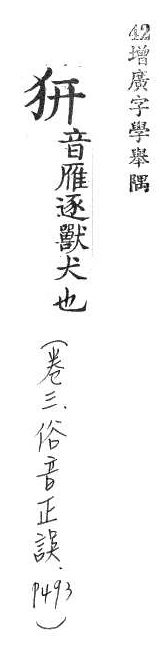 42增廣字學舉隅
犴音雁逐獸犬也
(卷三.俗音正誤.P493)